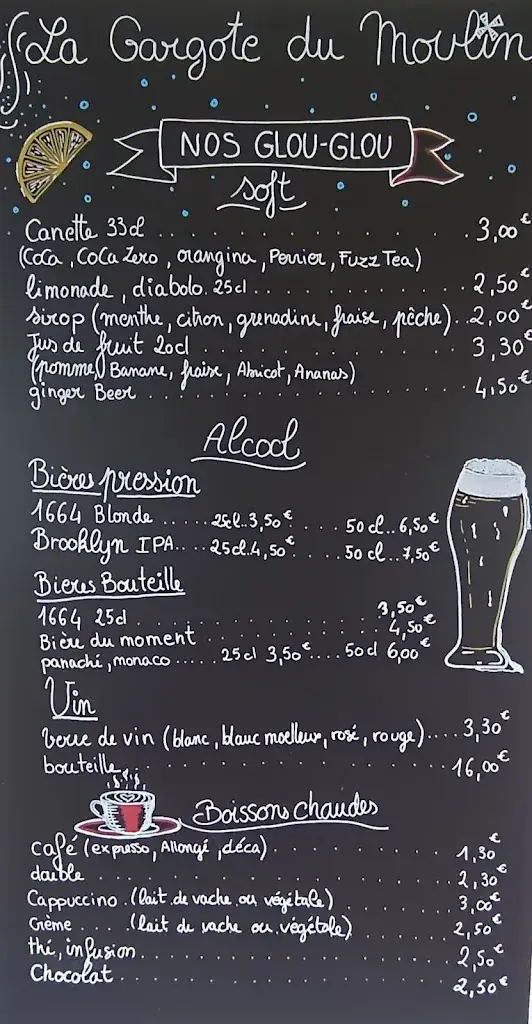 La Gargote du Moulin
NOS GLOU-GLOU
Soft
Canette 33cl . . . . . . . . . . . . . . . . . . . 3,00€
(Coca, Coca Zero, orangina, Perrier, Fuzz Tea)
limonade, diabolo. 25cl . . . . . . . . . . . . 2,50€
sirop (menthe, citron, grenadine, fraise, pêche) . . 2,00€
Jus de fruit 20cl . . . . . . . . . . . . . . . 3,30€
(pomme, Banane, fraise, Abricot, Ananas)
ginger Beer . . . . . . . . . . . . . . . . . . 4,50€
Alcool
Bières pression
1664 Blonde ..... 25cl..3,50€ . . . . 50 cl.. 6,50€
Brooklyn IPA... 25cl.4,50€ . . . . 50 cl.. 7,50€
Bieres Bouteille
1664 25cl . . . . . . . . . . . . . . 3,50€
Bière du moment . . . . . . . . . . . 4,50€
panaché, monaco ..... 25cl 3,50€.... 50cl 6,00€
Vin
verre de vin (blanc, blanc moelleux, rosé, rouge).... 3,30€
bouteille . . . . . . . . . . . . . . . . . . 16,00€
Boissons chaudes
café (expresso, Allongé, déca) . . . . . . . . . 1,30€
double . . . . . . . . . . . . . . . . . . . 2,30€
Cappuccino . (lait de vache ou végétale) . . . . . 3,00€
Crème . . . . (lait de vache ou végétale) . . . . 2,50€
thé, infusion . . . . . . . . . . . . . . . . 2,50€
Chocolat . . . . . . . . . . . . . . . . . . 2,50€